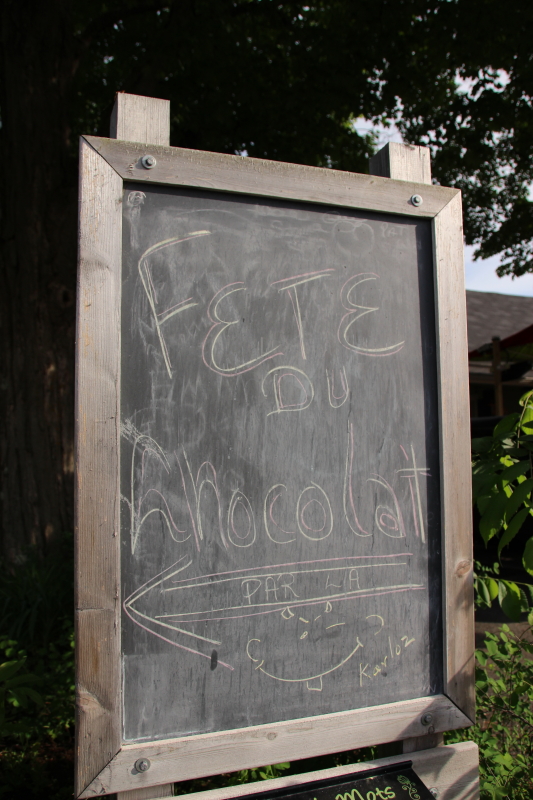 FETE
DU
Chocolat
PAR LA
Karloz
Mots